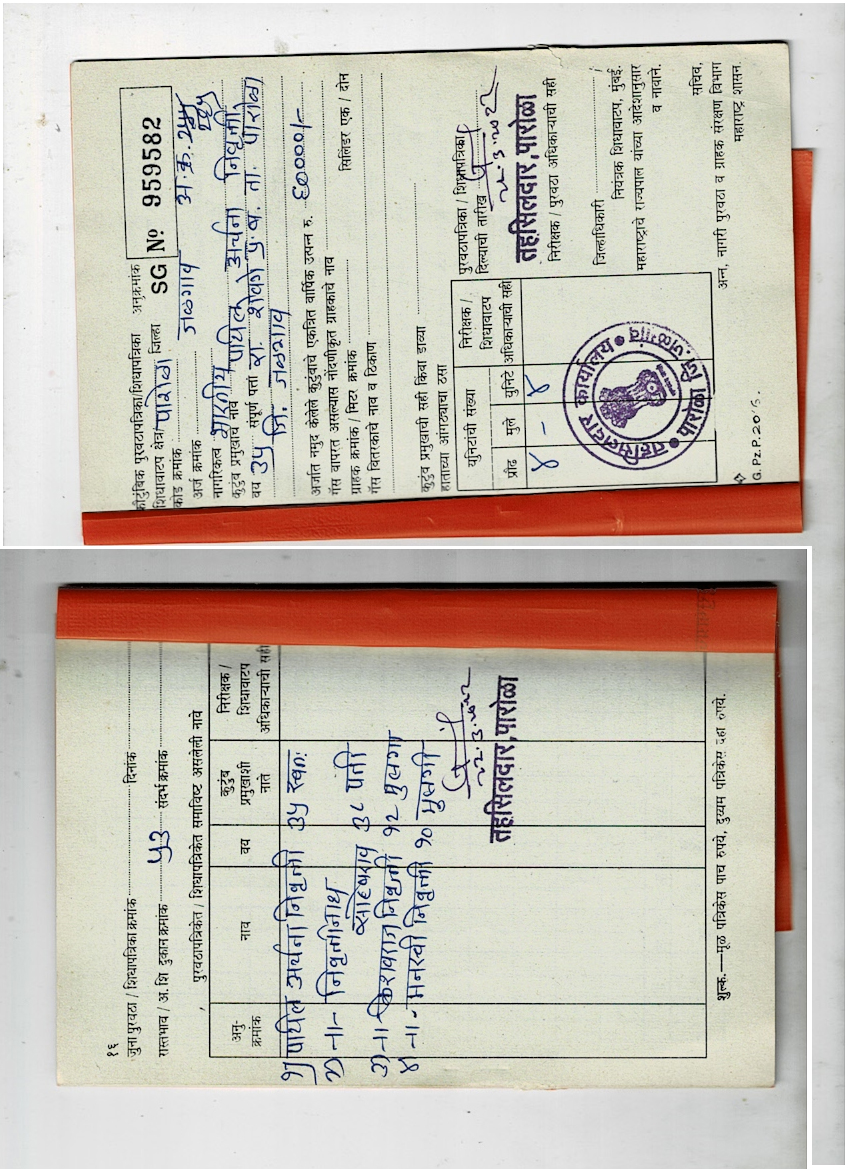 कौटुंबिक पुरवठापत्रिका/शिधापत्रिका अनुक्रमांक
शिधावाटप क्षेत्र/ पारोळा जिल्हा SG № 959582
कोड क्रमांक जळगाव अ.क्र.
अर्ज क्रमांक
नागरिकत्व भारतीय
कुटुंब प्रमुखाचे नाव पाटील अर्चना निवृत्ती
वय ३५ संपूर्ण पत्ता रा. शेवगे प्र.ब. ता. पारोळा
जि. जळगाव
अर्जात नमुद केलेले कुटुंबाचे एकत्रित वार्षिक उत्पन्न रु. ६००००/-
गॅस वापरत असल्यास नोंदणीकृत ग्राहकाचे नाव
ग्राहक क्रमांक / मिटर क्रमांक सिलिंडर एक / दोन
गॅस वितरकाचे नाव व ठिकाण
कुटुंब प्रमुखाची सही किंवा डाव्या
हाताच्या आंगठ्याचा ठसा
युनिटाची संख्या
प्रौढ मुले युनिटे
निरीक्षक /
शिधावाटप
अधिकाऱ्याची सही
४ - ४
पुरवठापत्रिका / शिधापत्रिका
दिल्याची तारीख
२२.३.२०२२
तहसिलदार, पारोळा
निरीक्षक / पुरवठा अधिकाऱ्याची सही
जिल्हाधिकारी /
नियंत्रक शिधावाटप, मुंबई.
महाराष्ट्राचे राज्यपाल यांच्या आदेशानुसार
व नावाने.
सचिव,
अन्न, नागरी पुरवठा व ग्राहक संरक्षण विभाग
महाराष्ट्र शासन.
तहसिलदार कार्यालय
पारोळा जि. जळगांव
G. Pz.P.
१६
जुना पुरवठा / शिधापत्रिका क्रमांक दिनांक
रास्तभाव / अ. शि दुकान क्रमांक ५३ संदर्भ क्रमांक
पुरवठापत्रिकेत / शिधापत्रिकेत समाविष्ट असलेली नावे
अनु-
क्रमांक
नाव
वय
कुटुंब
प्रमुखाशी
नाते
निरीक्षक /
शिधावाटप
अधिकाऱ्याची सही
१) पाटील अर्चना निवृत्ती ३५ स्वतः
२) -॥- निवृत्तीनाथ
साहेबराव ३८ पती
३) -॥- केशवराज निवृत्ती १२ मुलगा
४ -॥- मनस्वी निवृत्ती १० मुलगी
२२.३.२०२२
तहसिलदार, पारोळा
शुल्क.—मूळ पत्रिकेस पाच रुपये, दुय्यम पत्रिकेस दहा रुपये.